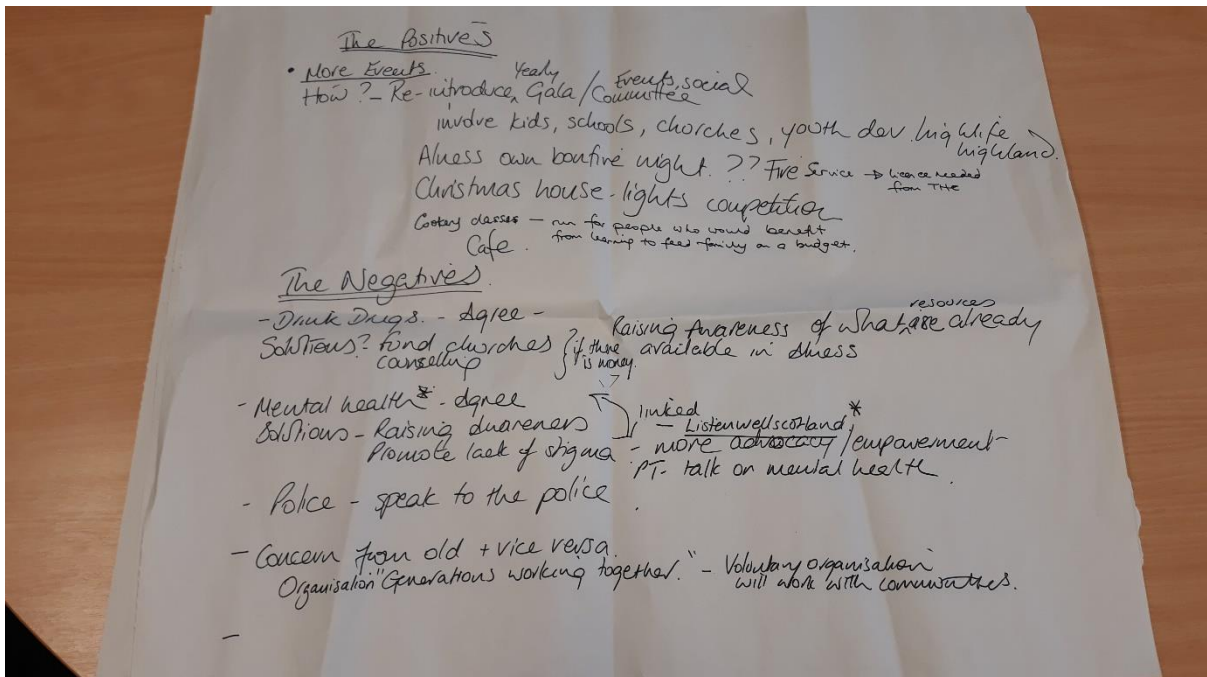 The Positives
• More Events.
How? - Re-introduce Yearly Gala / Events, social Committee
involve kids, schools, chorches, youth dev. highlife highland.
Alness own bonfire night. ?? Fire Service → licence needed from THE
Christmas house-lights competition
Cookery classes - run for people who would benefit
from learning to feed family on a budget.
Cafe.
The Negatives.
- Drink Drugs. - Agree -
Raising Awareness of what resources are already
available in Alness
Solutions? fund churches
counselling
if there
is money.
- Mental health* - Agree
Solutions - Raising awareness
Promote lack of stigma
linked
- Listenwellscotland *
- more advocacy / empowerment
PT - talk on mental health.
- Police - speak to the police.
- Concern from old + vice versa.
Organisation "Generations working together." - Voluntary organisation
will work with communities.
-